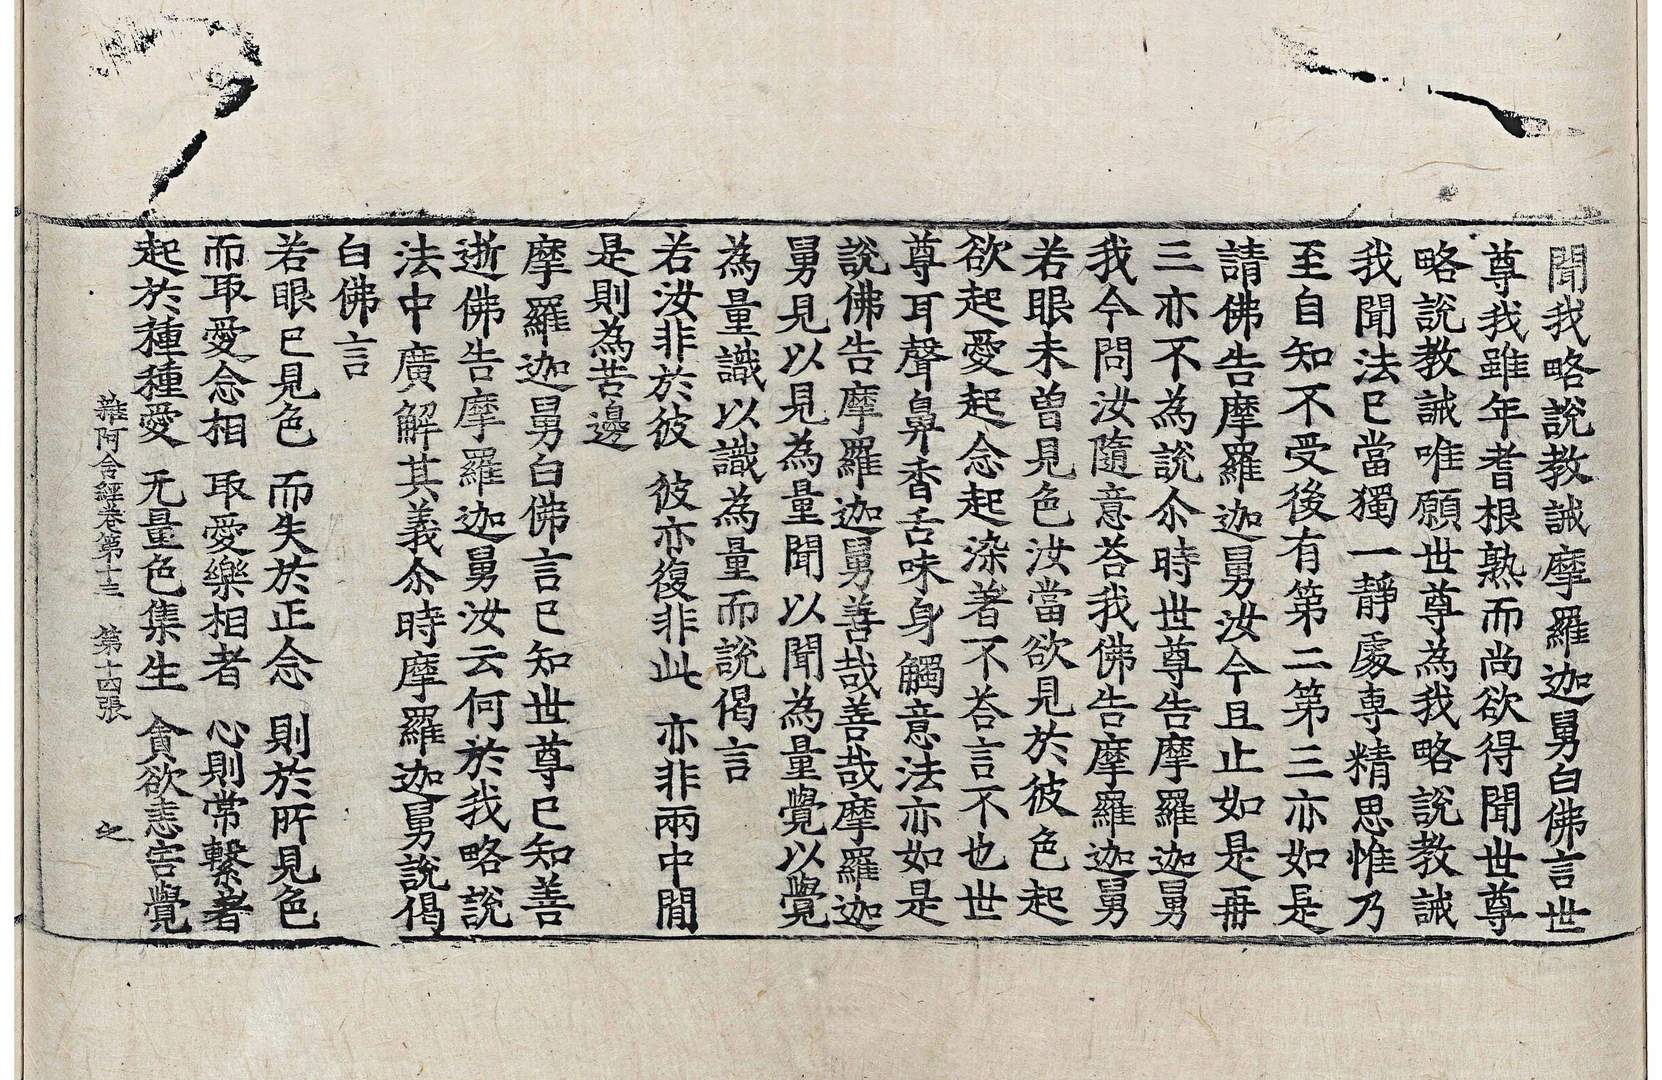 聞我略說教誡摩羅迦舅白佛言世
尊我雖年耆根熟而尚欲得聞世尊
略說教誡唯願世尊為我略說教誡
我聞法已當獨一靜處專精思惟乃
至自知不受後有第二第三亦如是
請佛告摩羅迦舅汝今且止如是再
三亦不為說尒時世尊告摩羅迦舅
我今問汝隨意荅我佛告摩羅迦舅
若眼未曾見色汝當欲見於彼色起
欲起愛起念起染著不荅言不也世
尊耳聲鼻香舌味身觸意法亦如是
說佛告摩羅迦舅善哉善哉摩羅迦
舅見以見為量聞以聞為量覺以覺
為量識以識為量而說偈言
若汝非於彼 彼亦復非此 亦非兩中間
是則為苦邊
摩羅迦舅白佛言已知世尊已知善
逝佛告摩羅迦舅汝云何於我略說
法中廣解其義尒時摩羅迦舅說偈
白佛言
若眼已見色 而失於正念 則於所見色
而取愛念相 取愛樂相者 心則常繫著
起於種種愛 无量色集生 貪欲恚害覺
雜阿含經卷第十三 第十四張 之